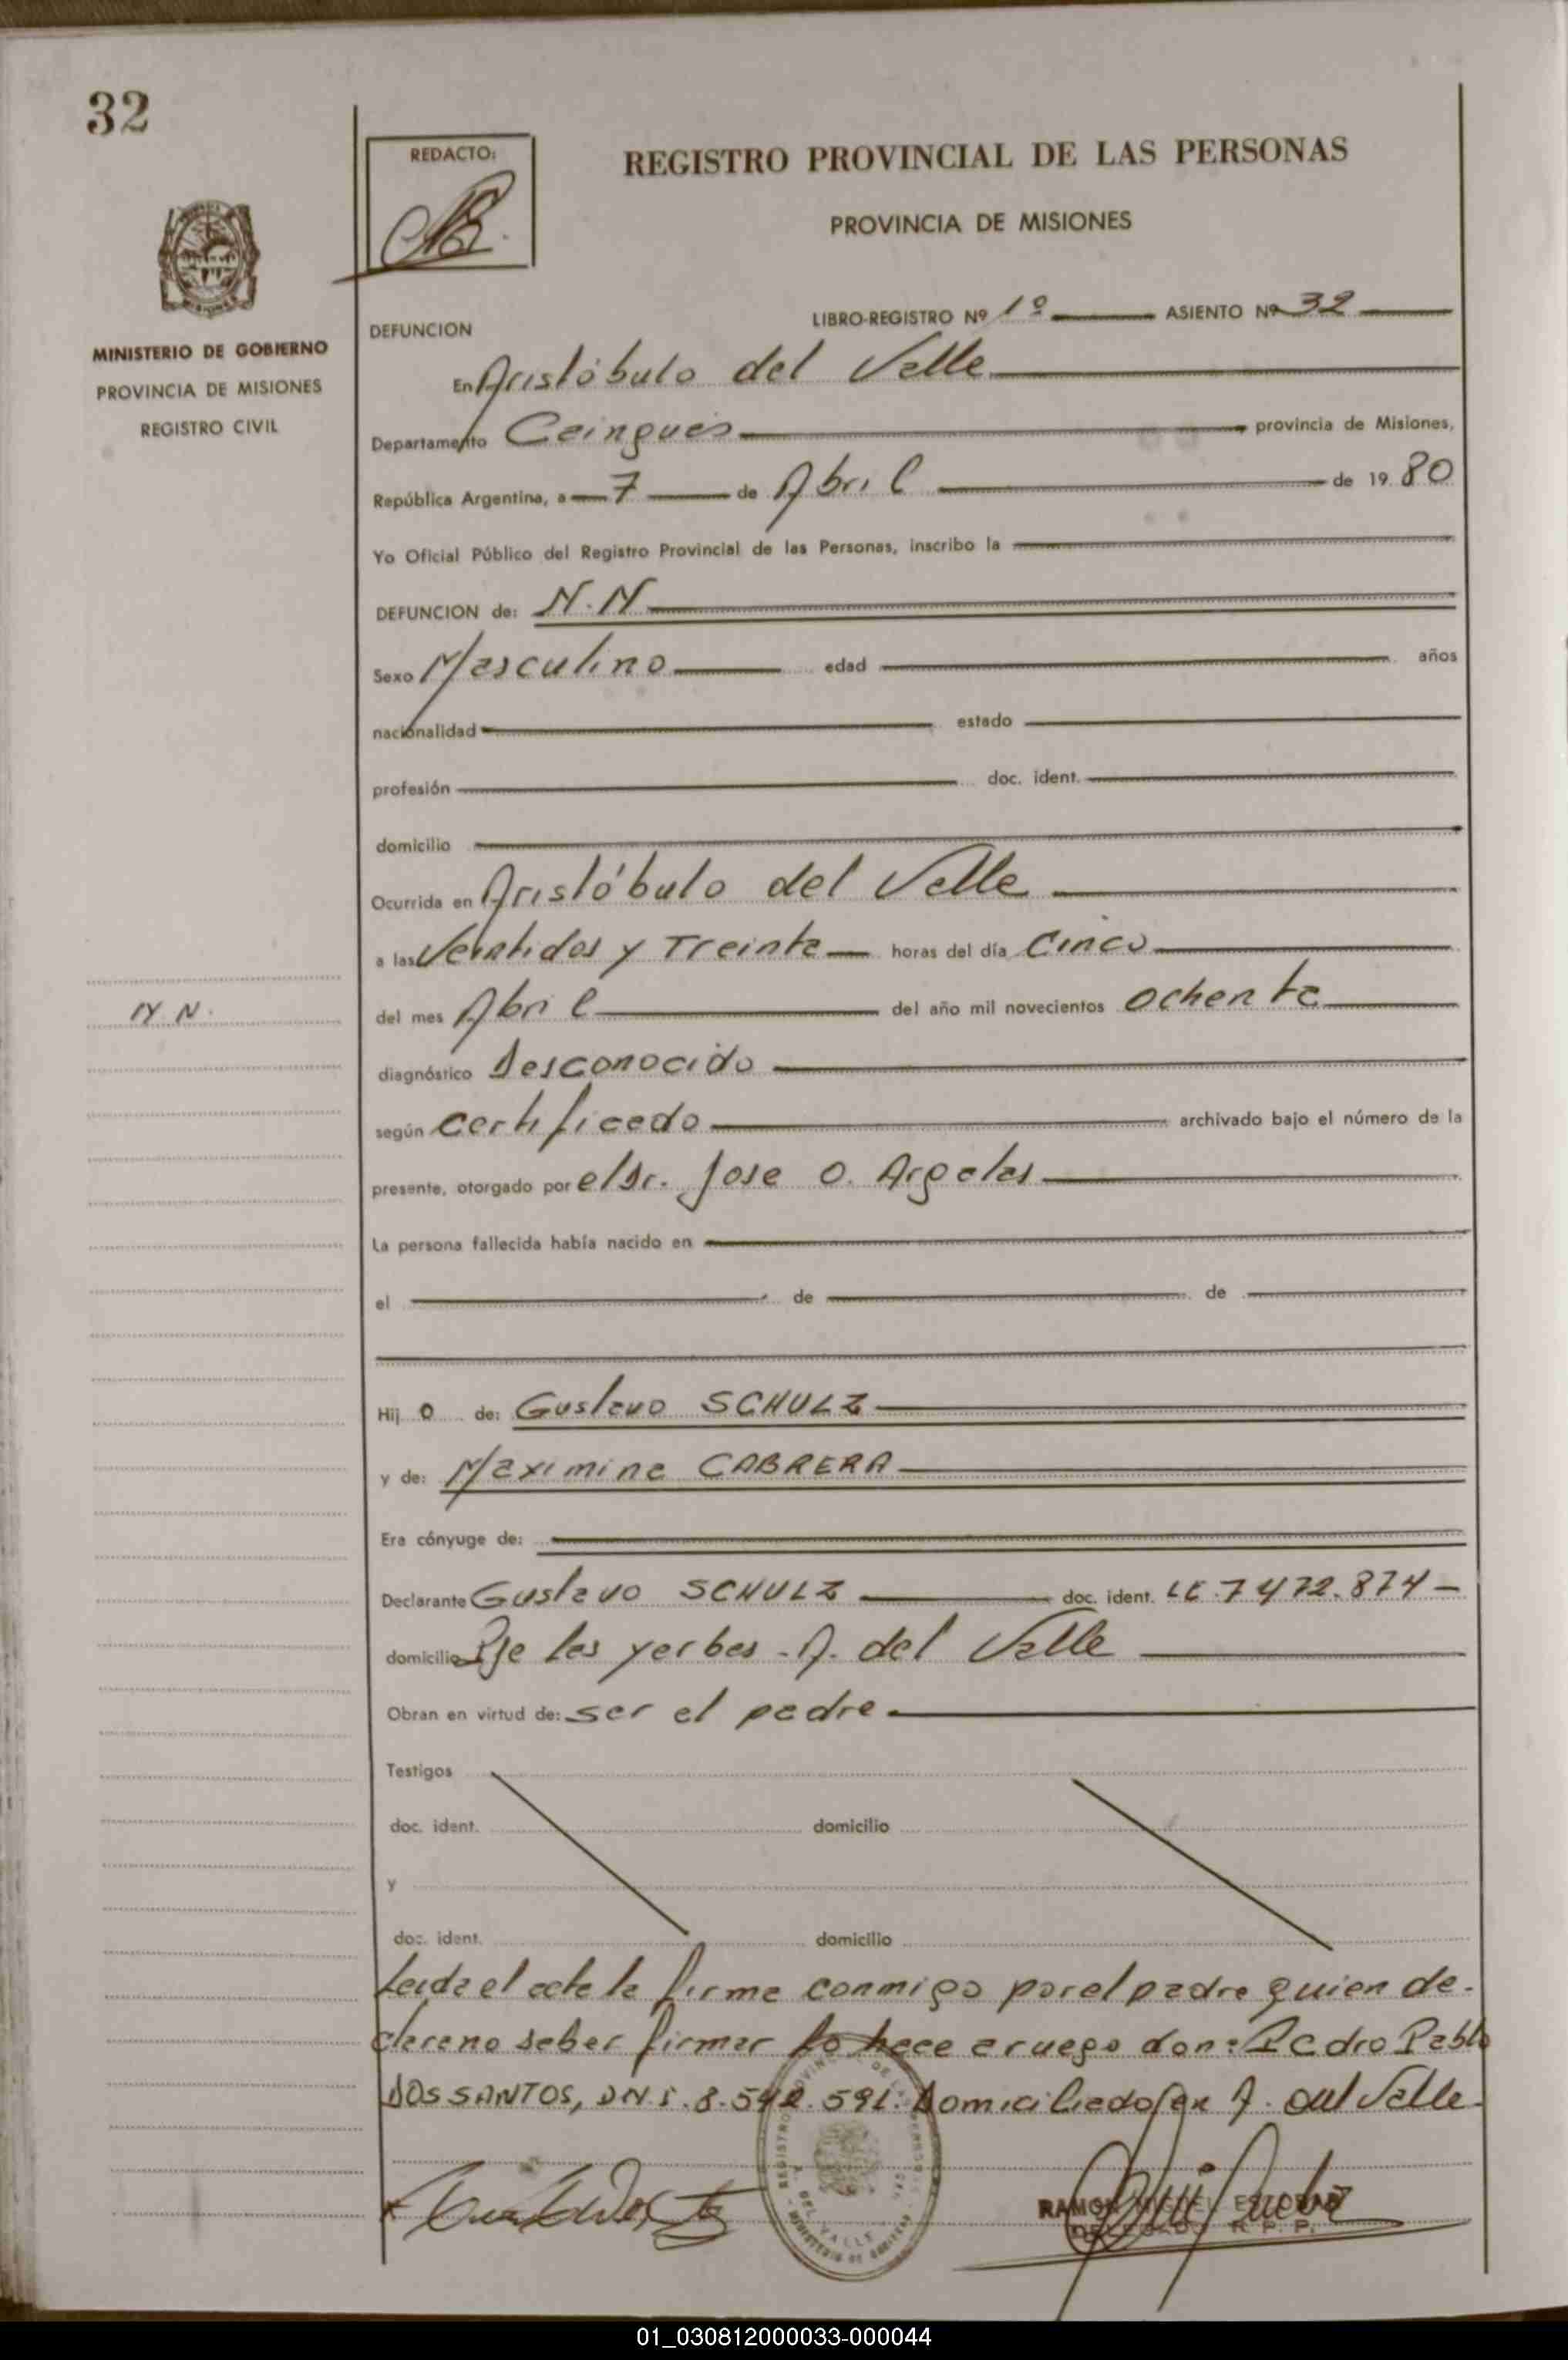 32
REDACTO:
REGISTRO PROVINCIAL DE LAS PERSONAS
PROVINCIA DE MISIONES
MINISTERIO DE GOBIERNO
PROVINCIA DE MISIONES
REGISTRO CIVIL
LIBRO-REGISTRO Nº 1º ASIENTO Nº 32
DEFUNCION
En Aristóbulo del Valle
Departamento Cainguás provincia de Misiones,
República Argentina, a 7 de Abril de 19 80
Yo Oficial Público del Registro Provincial de las Personas, inscribo la
DEFUNCION de: N.N
Sexo Masculino edad años
nacionalidad estado
profesión doc. ident.
domicilio
Ocurrida en Aristóbulo del Valle
a las Veintidos y Treinta horas del día Cinco
N.N.
del mes Abril del año mil novecientos ochenta
diagnóstico Desconocido
según certificado archivado bajo el número de la
presente, otorgado por el Dr. Jose O. Argelas
La persona fallecida había nacido en
el de de
Hij o de: Gustavo SCHULZ
y de: Maximina CABRERA
Era cónyuge de:
Declarante Gustavo SCHULZ doc. ident. LE. 7472.874
domicilio Pje las yerbas - A. del Valle
Obran en virtud de: ser el padre
Testigos
doc. ident. domicilio
y
doc. ident. domicilio
Leida el acta la firma conmigo por el padre quien de-
clara no saber firmar lo hace a ruego don: Pedro Pablo
DOS SANTOS, DN.I. 8.542.591. Domiciliado en A. del Valle
RAMON MIGUEL ESCOBAR
DELEGADO R. P. P.
01_030812000033-000044